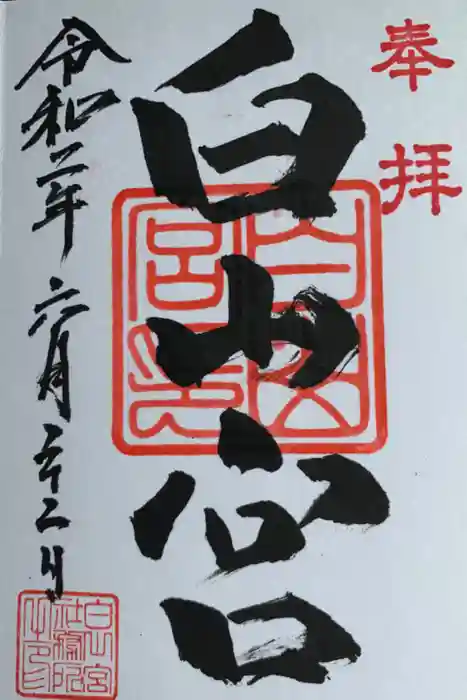 奉拝
白山宮
令和二年六月二十二日
白山宮印
白山宮
社務所
之印